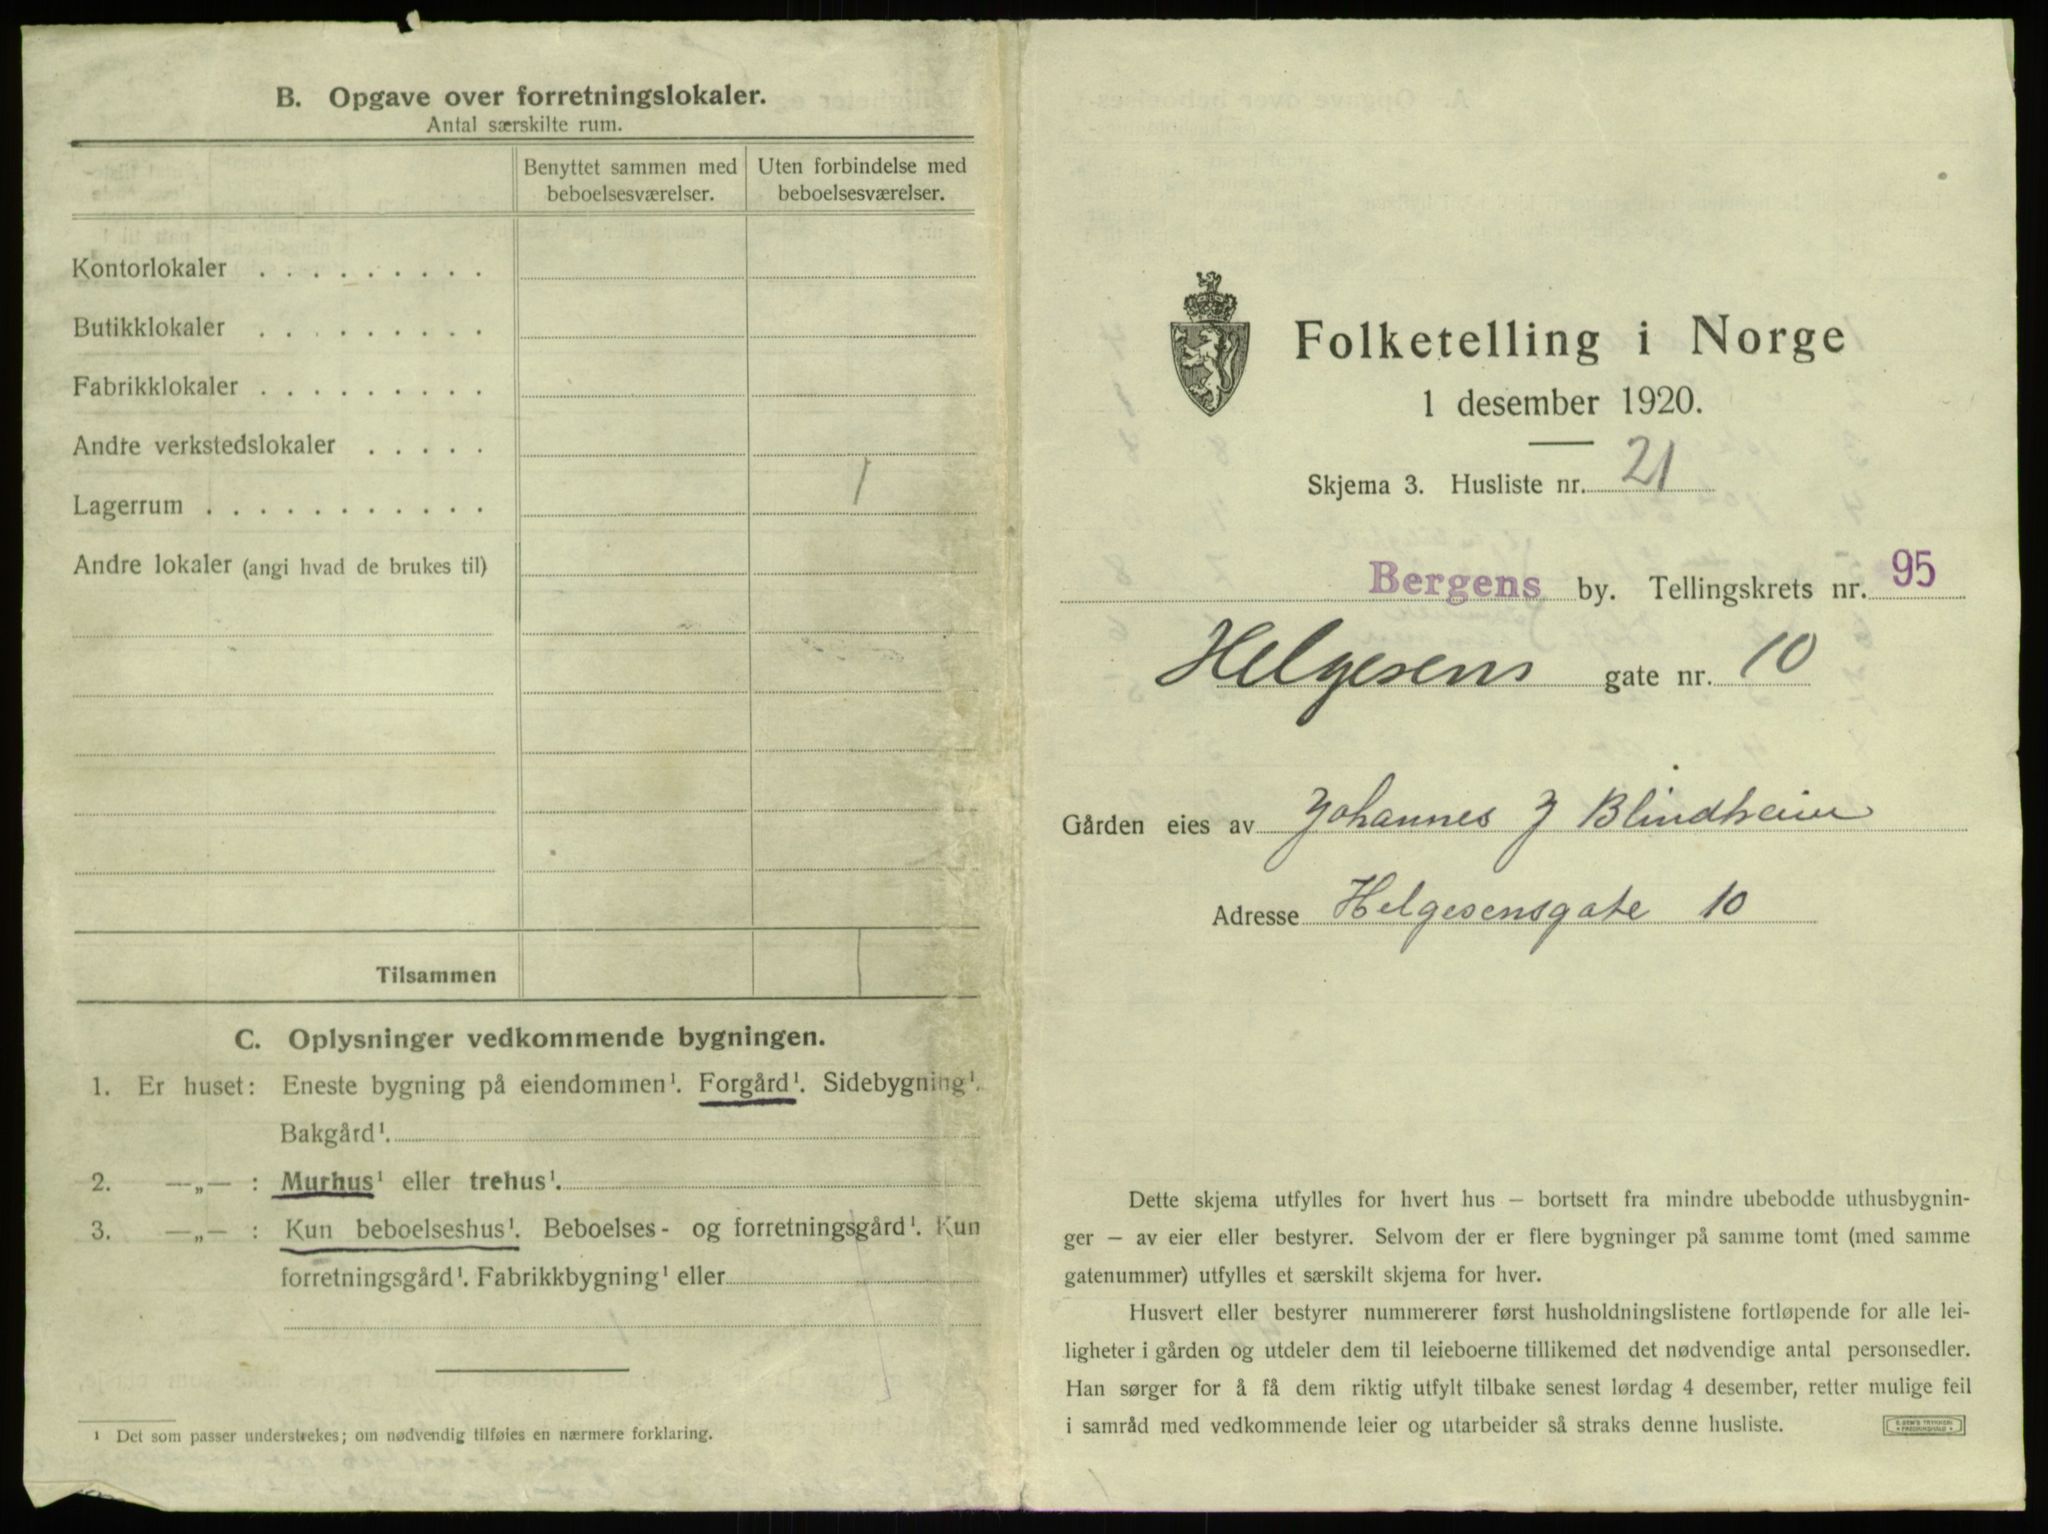 B. Opgave over forretningslokaler.
Antal særskilte rum.
Benyttet sammen med
beboelsesværelser.
Uten forbindelse med
beboelsesværelser.
Kontorlokaler . . . . . . . . .
Butikklokaler . . . . . . . . .
Fabrikklokaler . . . . . . . . .
Andre verkstedslokaler . . . . .
Lagerrum . . . . . . . . . . . 1
Andre lokaler (angi hvad de brukes til)
Tilsammen 1
C. Oplysninger vedkommende bygningen.
1. Er huset: Eneste bygning på eiendommen¹. Forgård¹. Sidebygning¹.
Bakgård¹.
2. —„— : Murhus¹ eller trehus¹.
3. —„— : Kun beboelseshus¹. Beboelses- og forretningsgård¹. Kun
forretningsgård¹. Fabrikkbygning¹ eller
¹ Det som passer understrekes; om nødvendig tilføies en nærmere forklaring.
Folketelling i Norge
1 desember 1920.
Skjema 3. Husliste nr. 21
Bergens by. Tellingskrets nr. 95
Helgesens gate nr. 10
Gården eies av Johannes J Blindheim
Adresse Helgesensgate 10
Dette skjema utfylles for hvert hus – bortsett fra mindre ubebodde uthusbygnin-
ger – av eier eller bestyrer. Selvom der er flere bygninger på samme tomt (med samme
gatenummer) utfylles et særskilt skjema for hver.
Husvert eller bestyrer nummererer først husholdningslistene fortløpende for alle lei-
ligheter i gården og utdeler dem til leieboerne tillikemed det nødvendige antal personsedler.
Han sørger for å få dem riktig utfylt tilbake senest lørdag 4 desember, retter mulige feil
i samråd med vedkommende leier og utarbeider så straks denne husliste.